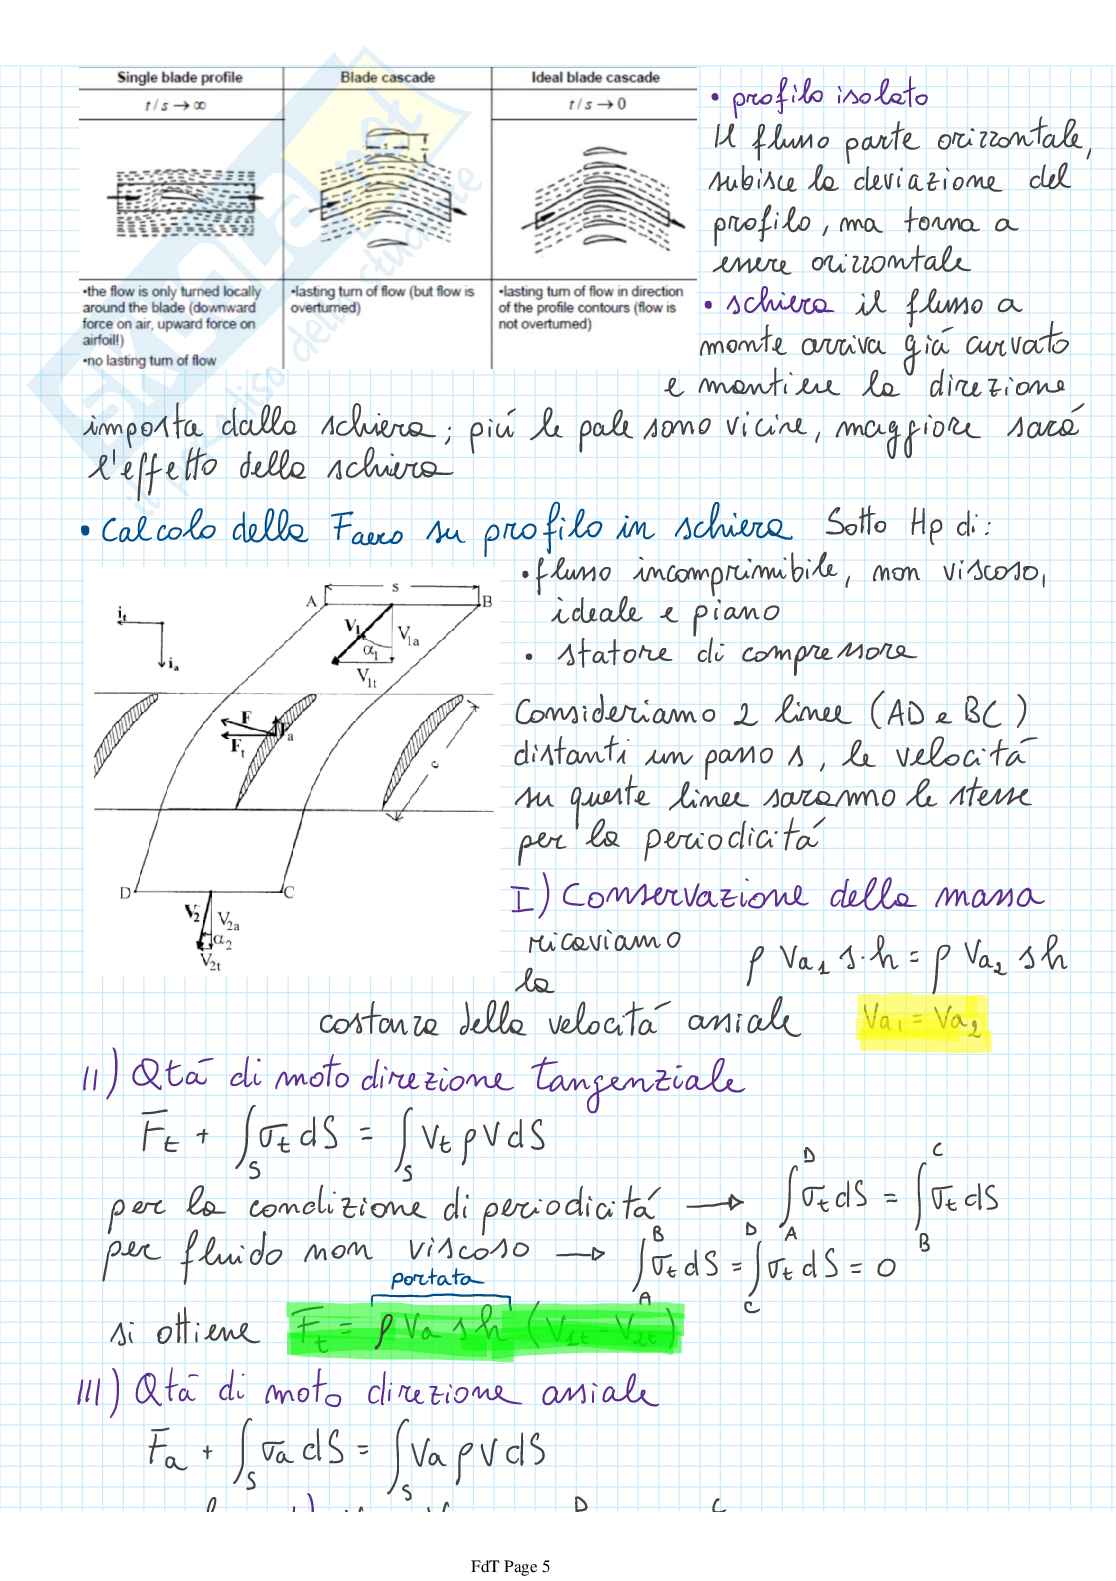 Single blade profile Blade cascade Ideal blade cascade
t / s → ∞ t / s → 0
•the flow is only turned locally
around the blade (downward
force on air, upward force on
airfoil!)
•no lasting turn of flow
•lasting turn of flow (but flow is
overturned)
•lasting turn of flow in direction
of the profile contours (flow is
not overturned)
• profilo isolato
Il flusso parte orizzontale,
subisce la deviazione del
profilo, ma torna a
essere orizzontale
• schiera il flusso a
monte arriva giá curvato
e mantiene la direzione
imposta dalla schiera; piú le pale sono vicine, maggiore sará
l'effetto della schiera
• Calcolo della Faero su profilo in schiera Sotto Hp di:
• flusso incomprimibile, non viscoso,
ideale e piano
• statore di compressore
A s B
it
ia
V1 V1a
α1
V1t
F
Fa
Ft
c
D C
V2 V2a
α2
V2t
Consideriamo 2 linee (AD e BC)
distanti un passo s, le velocitá
su queste linee saranno le stesse
per la periodicitá
I) Conservazione della massa
ricaviamo ρ Va1 s·h = ρ Va2 s h
la
costanza della velocitá assiale Va1 = Va2
II) Qtá di moto direzione tangenziale
F̅t + ∫S σt dS = ∫S Vt ρ V dS
per la condizione di periodicitá → ∫A D σt dS = ∫B C σt dS
per fluido non viscoso → ∫A B σt dS = ∫C D σt dS = 0
portata
si ottiene F̅t = ρ Va s h (V1t - V2t)
III) Qtá di moto direzione assiale
F̅a + ∫S σa dS = ∫S Va ρ V dS
D C
FdT Page 5